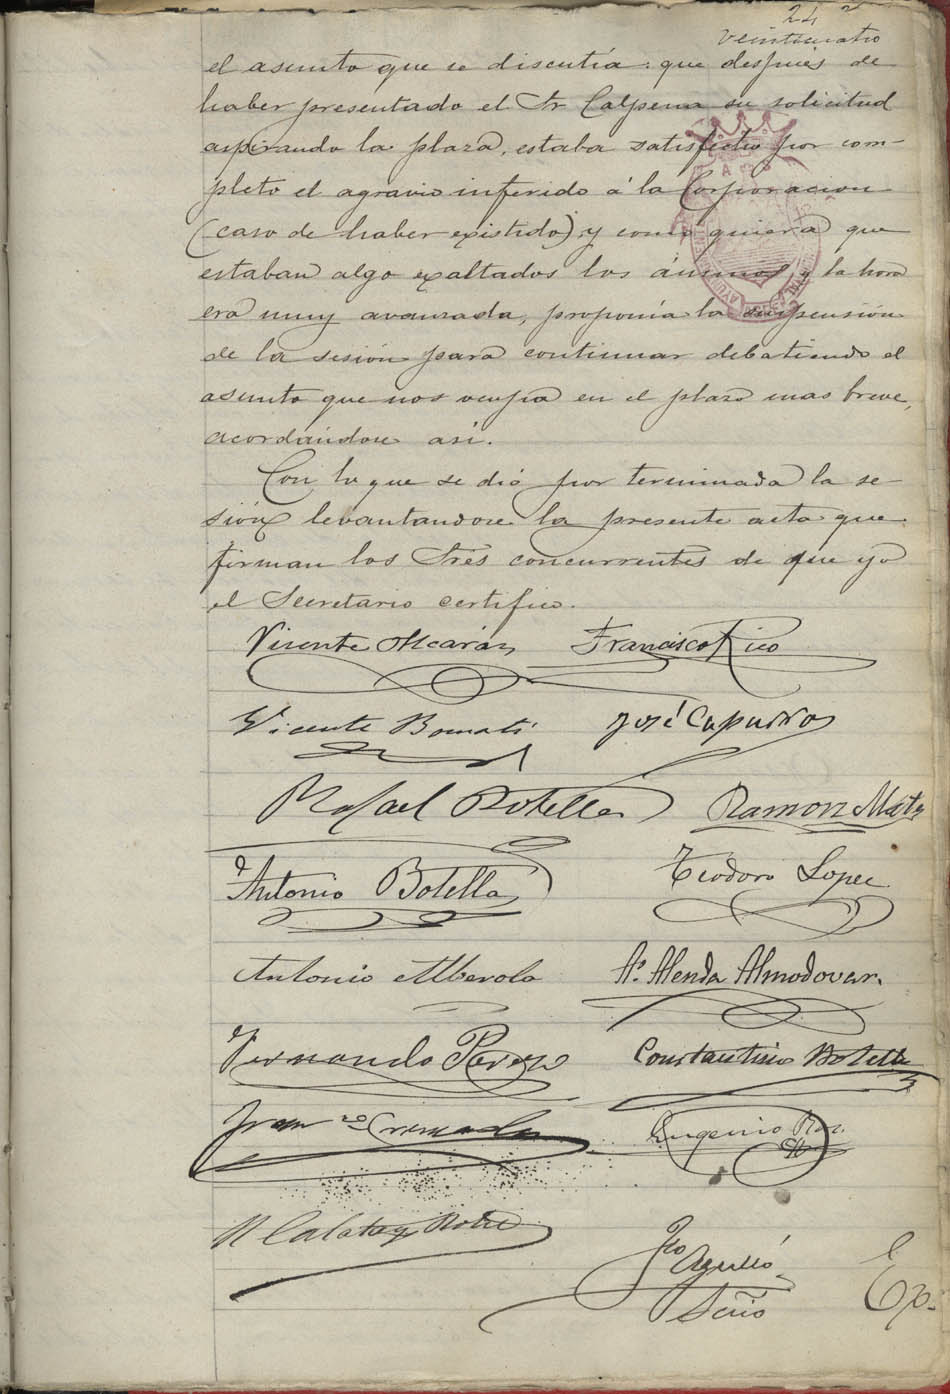 24
veinticuatro
el asunto que se discutia: que despues de
haber presentado el Sr Calpena su solicitud
aspirando la plaza, estaba satisfecho por com-
pleto el agravio inferido á la Corporacion
(caso de haber existido) y como quiera que
estaban algo exaltados los ánimos y la hora
era muy avanzada, proponía la suspensión
de la sesión para continuar debatiendo el
asunto que nos ocupa en el plazo mas breve,
acordándose así.
Con lo que se dió por terminada la se-
sión levantandose la presente acta que
firman los Sres concurrentes de que yo
el Secretario certifico.
Vicente Alcaráz Francisco Rico
Vicente Bomati José Capurro
Rafael Botella Ramon Mas
Antonio Botella Teodoro Lopez
Antonio Alberola Ao. Alenda Almodovar.
Fernando Perez Constantino Botella
Franco Cremades Eugenio
R Calatay
Fco Agulló
Srio